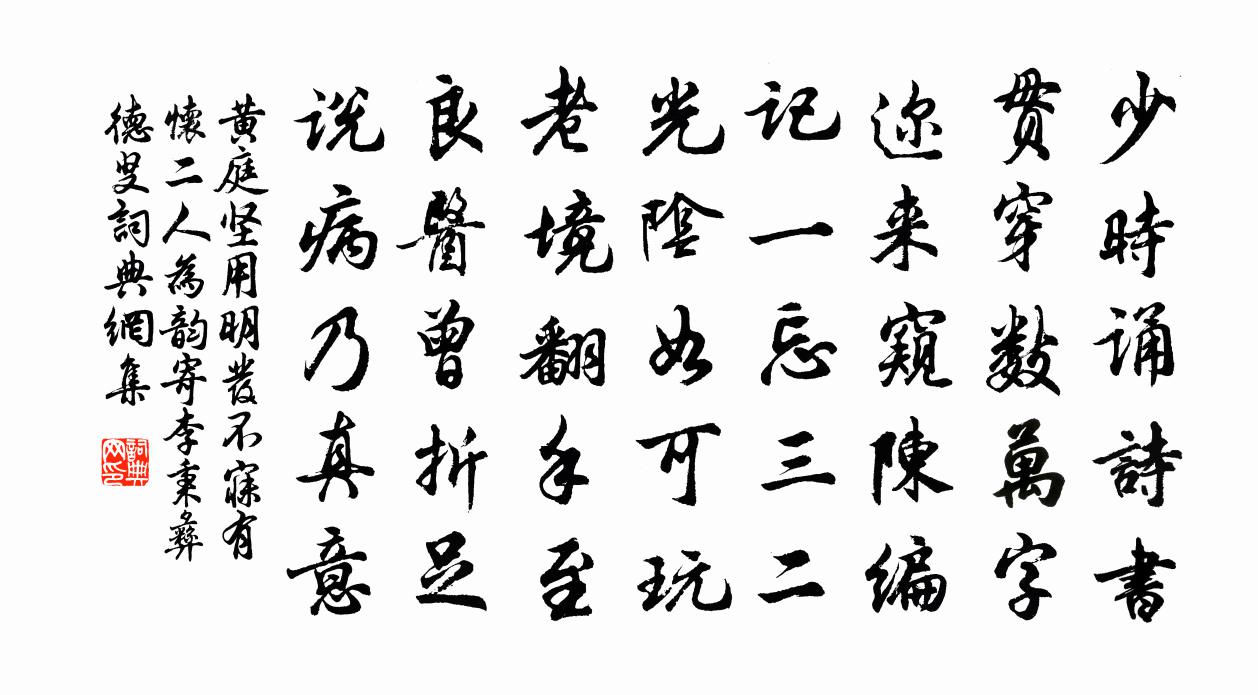 少時誦詩書
贯穿数萬字
迩来窺陳编
记一忘三二
光陰如可玩
老境翻手至
良醫曾折足
说病乃真意
黄庭坚用明發不寐有
懷二人為韵寄李秉彝
德叟詞典網集
詞典
网印